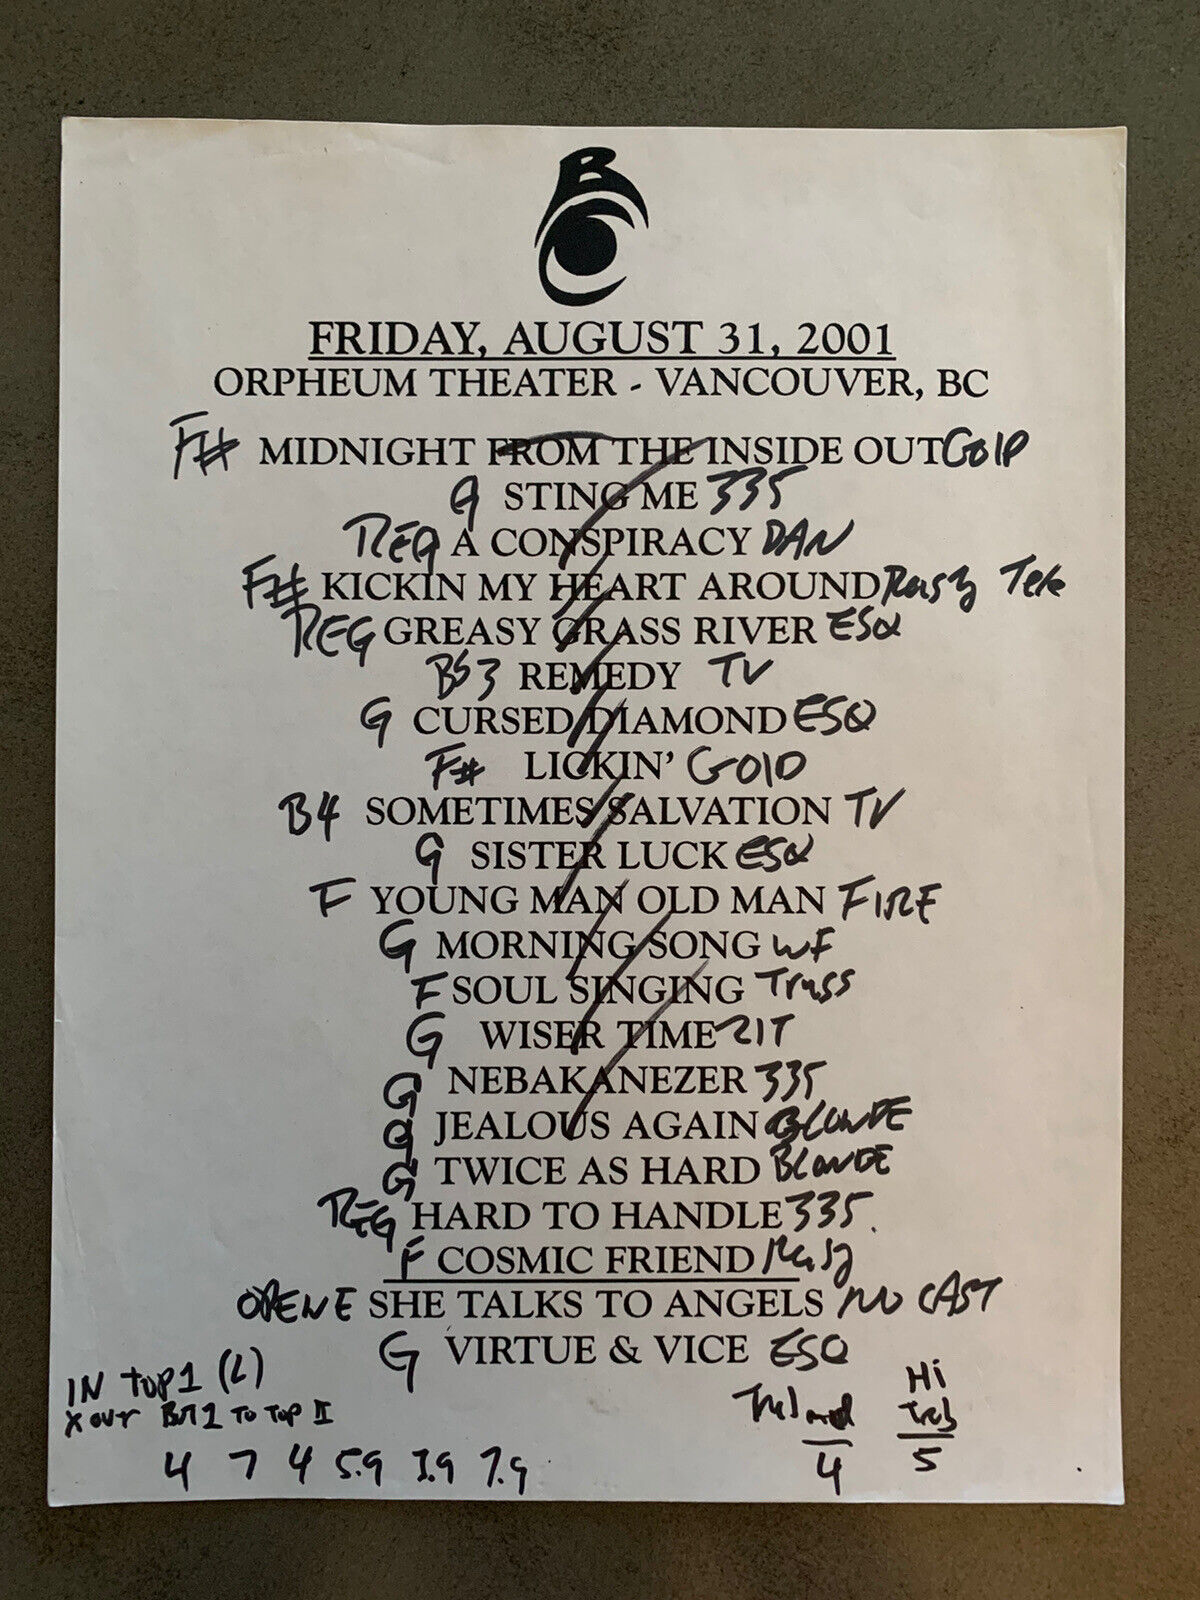 BC
FRIDAY, AUGUST 31, 2001
ORPHEUM THEATER - VANCOUVER, BC
F# MIDNIGHT FROM THE INSIDE OUT GOLD
G STING ME 335
REG A CONSPIRACY DAN
F# KICKIN MY HEART AROUND Rusty Tele
REG GREASY GRASS RIVER ESQ
BS3 REMEDY TV
G CURSED DIAMOND ESQ
F# LICKIN' GOLD
B4 SOMETIMES SALVATION TV
G SISTER LUCK ESQ
F YOUNG MAN OLD MAN FIRE
G MORNING SONG WF
F SOUL SINGING Truss
G WISER TIME ZIT
G NEBAKANEZER 335
G JEALOUS AGAIN BLONDE
G TWICE AS HARD BLONDE
REG HARD TO HANDLE 335.
F COSMIC FRIEND Rusty
OPEN E SHE TALKS TO ANGELS NO CAST
G VIRTUE & VICE ESQ
IN top 1 (L)
X OUT 1 TO TOP II
4 7 4 5.9 7.9 7.9
4
Hi Treb 5